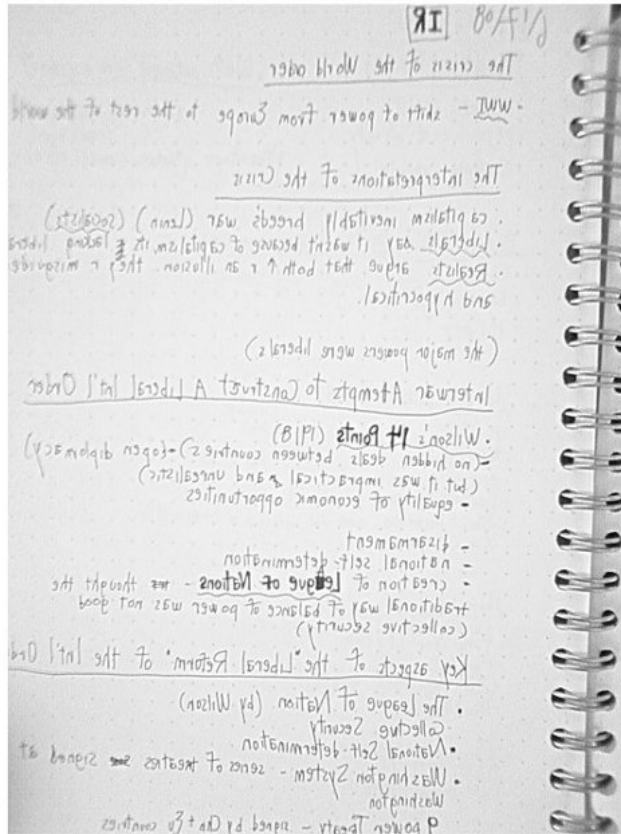 IR
The crisis of the World order
• WWI - shift of power from Europe to the rest of the world
The Interpretations of the Crisis
• capitalism inevitably breeds war (Lenin) (socialists)
• Liberals say it wasn't because of capitalism, its lacking libera
• Realists argue that both ↑ r an illusion. they r misguide
and hypocritical.
(the major powers were liberals)
Interwar Attempts to Construct A Liberal Int'l Order
• Wilson's 14 Points (1918)
- (no hidden deals between countries) - (open diplomacy)
(but it was impractical and unrealistic)
- equality of economic opportunities
- disarmament
- national self-determination
- creation of League of Nations - thought the
traditional way of balance of power was not good
(collective security)
Key aspects of the "Liberal Reform" of the Int'l Ord
• The League of Nation (by Wilson)
Collective Security
• National Self-determination
• Washington System - series of treaties signed at
Washington
9 power Treaty - signed by Chn + Eu countries